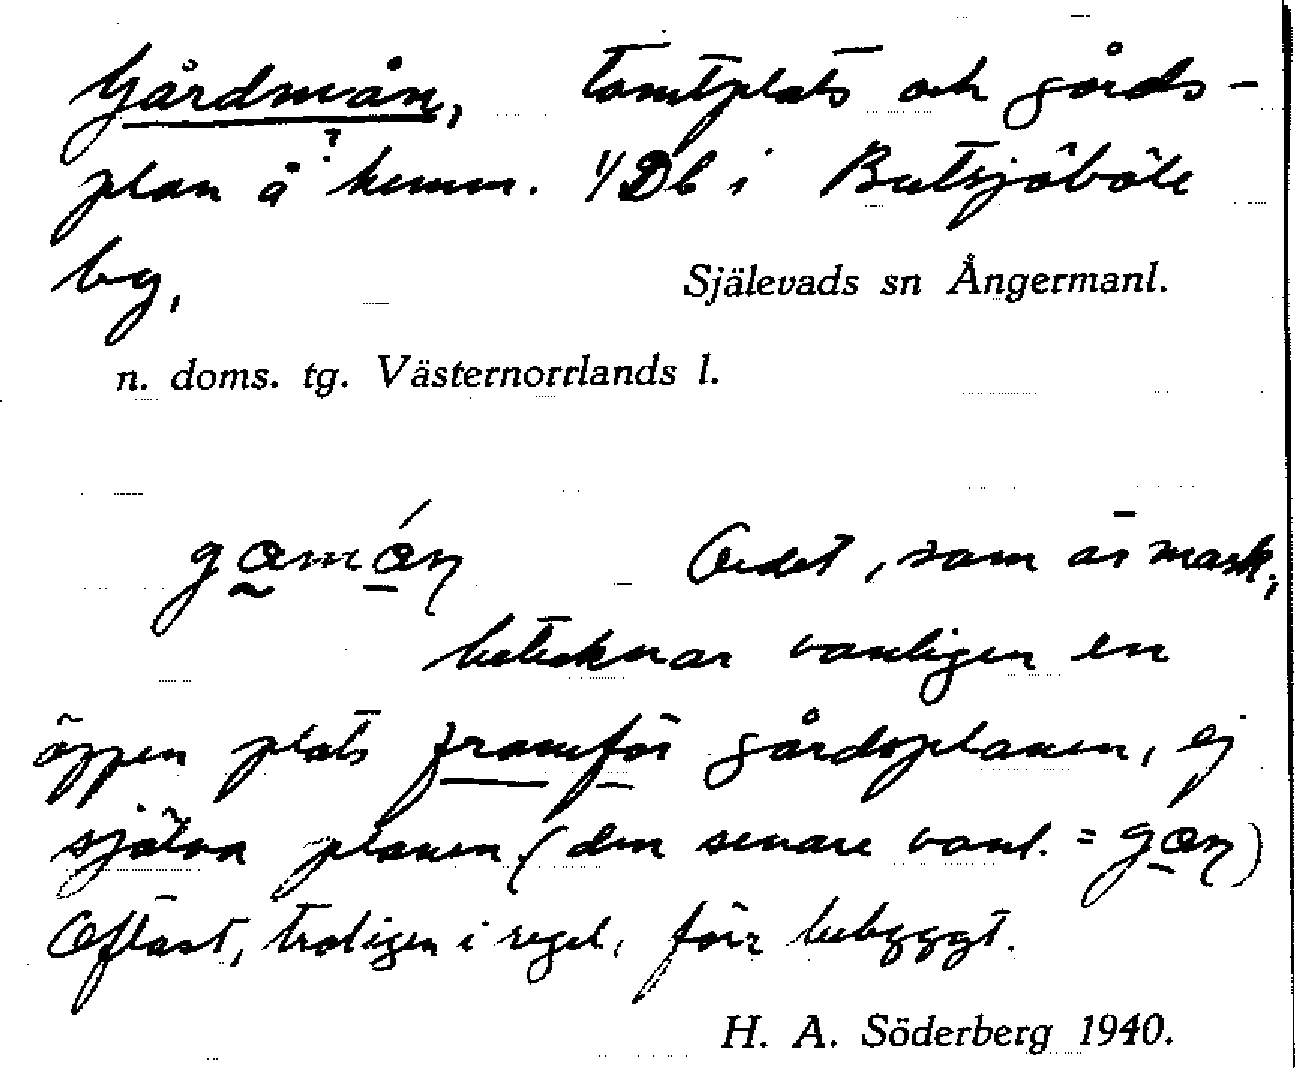 Gårdmån, tomtplats och gårds-
plan å hemm. 1/Db i Butsjöböle
by,
Själevads sn Ångermanl.
n. doms. tg. Västernorrlands l.
Ordet, som är mask,
betecknar vanligen en
öppen plats framför gårdsplanen, ej
själva planen (den senare vanl. =
Oftast, troligen i regel, förr bebyggt.
H. A. Söderberg 1940.